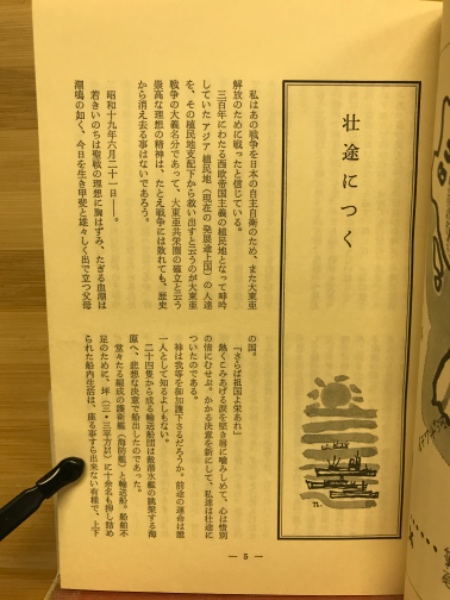 壮途につく
私はあの戦争を日本の自主自衛のため、また大東亜
解放のために戦ったと信じている。
三百年にわたる西欧帝国主義の植民地となって呻吟
していたアジア植民地（現在の発展途上国）の人達
を、その植民地支配下から救い出すと云うのが大東亜
戦争の大義名分であって、大東亜共栄圏の確立と云う
崇高な理想の精神は、たとえ戦争には敗れても、歴史
から消え去る事はないであろう。
昭和十九年六月二十一日——。
若きいのちは聖戦の理想に胸はずみ、たぎる血潮は
潮鳴の如く、今日を生き甲斐と雄々しく出で立つ父母
の国。
『さらば祖国よ栄あれ』
熱くこみあげる涙を堅き唇に噛みしめて、心は惜別
の情にむせぶ。かかる決意を新にして、私達は壮途に
ついたのである。
神は我等を御加護下さるだろうか。前途の運命は誰
一人として知るよしもない。
二十四隻から成る輸送船団は敵潜水艦の跳梁する海
原へ、悲愴な決意で船出したのであった。
堂々たる編成の護衛艦（海防艦）と輸送船。船舶不
足のために、坪（三・三平方㍍）に十余名も押し詰め
られた船内生活は、座る事すら出来ない有様で、上下
— 5 —